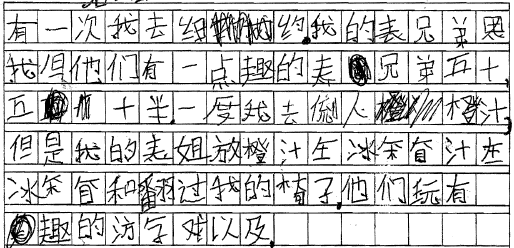 有一次我去纽约.我的表兄弟跟
我但他们有一点趣的表兄弟五十
五十半.一度我去倒人橙汁,
但是我的表姐放橙汁在冰笨音汁在
冰笨音和翻过我的椅子.他们玩有
趣的访字难以及.